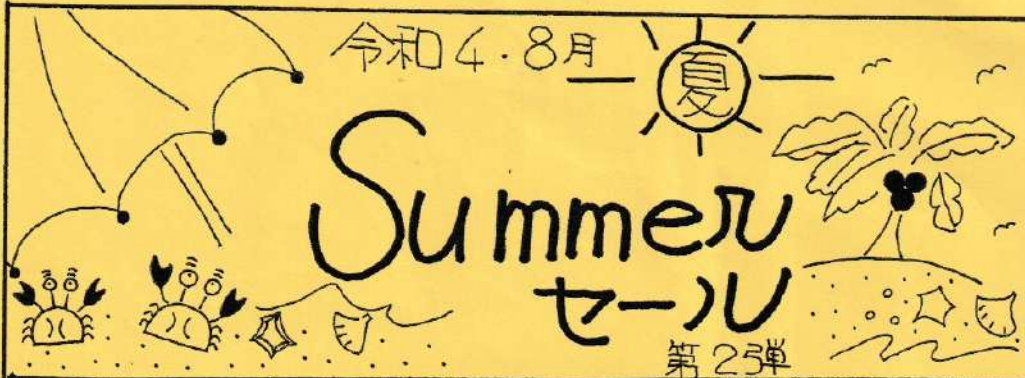 令和4・8月
夏
Summer
セール
第2弾